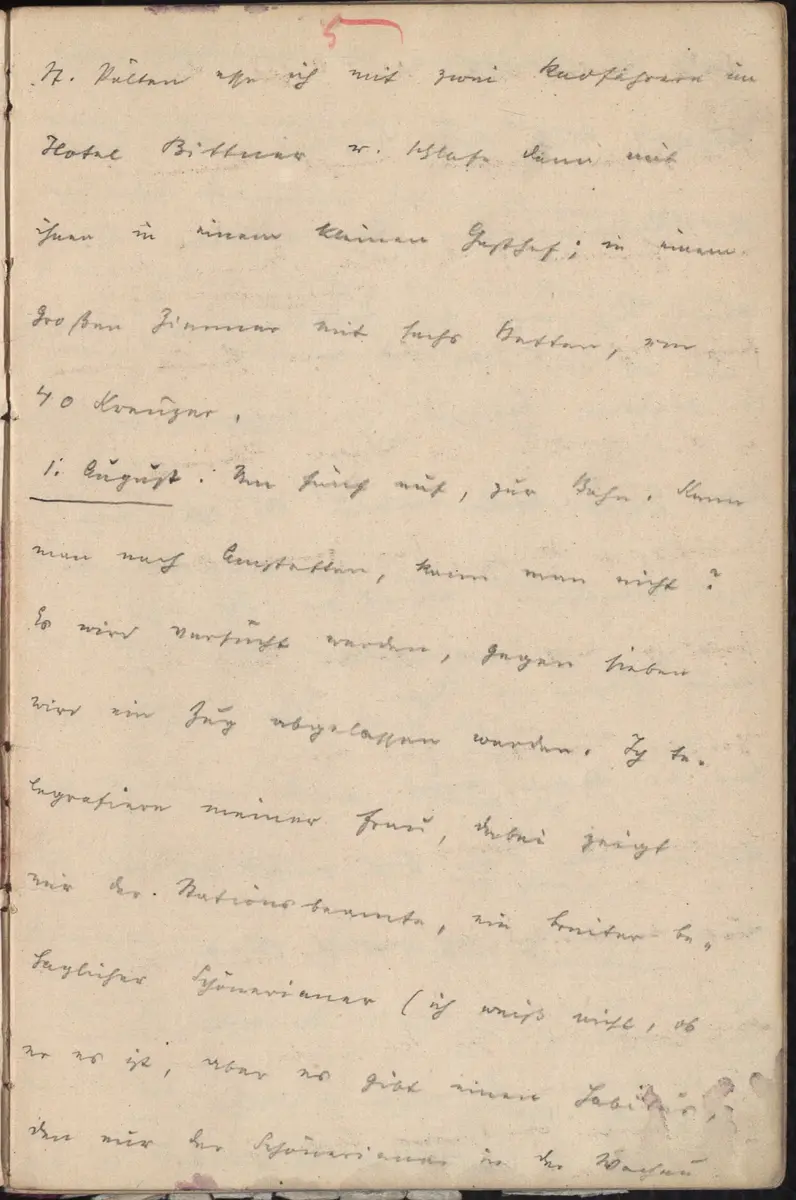 5
St. Pölten esse ich mit zwei Radfahrern im
Hotel Bittner u. schlafe dann mit
ihnen in einem kleinen Gasthof; in einem
großen Zimmer mit sechs Betten, um
40 Kreuzer.
1. August. Um fünf auf, zur Bahn. Kann
man nach Amstetten, kann man nicht?
Es wird versucht werden, gegen sieben
wird ein Zug abgelassen werden. Ich te-
legrafiere meiner Frau, dabei zeigt
mir der Stationsbeamte, ein breiter be-
haglicher Schönerianer (ich weiß nicht, ob
er es ist, aber es gibt einen Habitus,
den nur der Schönerianer in der Wachau